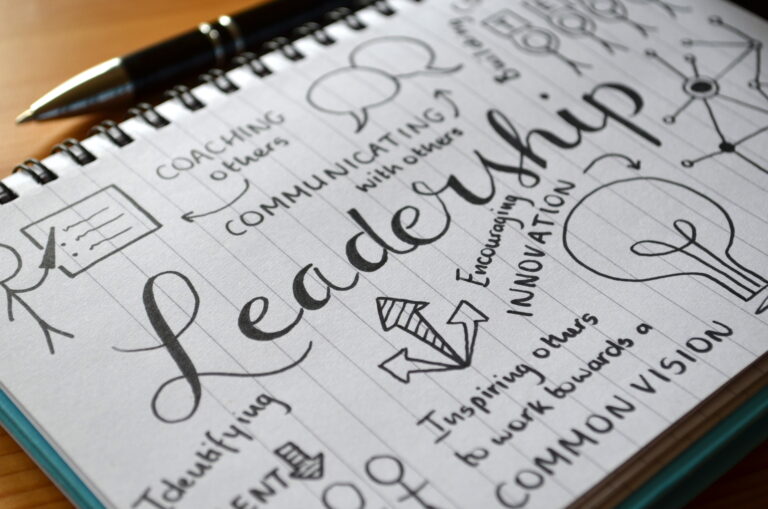 COACHING
others
COMMUNICATING
with others
Building
Leadership
Encouraging
INNOVATION
Inspiring others
to work towards a
COMMON VISION
Identifying